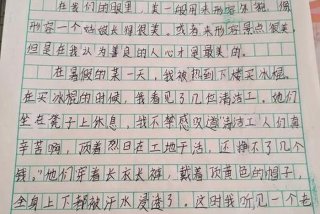 在我们的眼里，美一般用来形容
形容一个姑娘长得很美。或者来形容景点很美，
但是在我认为善良的人心才是最美的。
在暑假的某一天，我被热到下楼买冰棍。
在买冰棍的时候，我看见了几位清洁工。他们
坐在凳子上休息，我不禁感叹道清洁工人们真
辛苦啊，顶着烈日在工地干活，还挣不了几个
钱。”他们穿着长衣长裤，戴着黄色的帽子，
全身上下都被汗水浸透了。这时我听见一个老